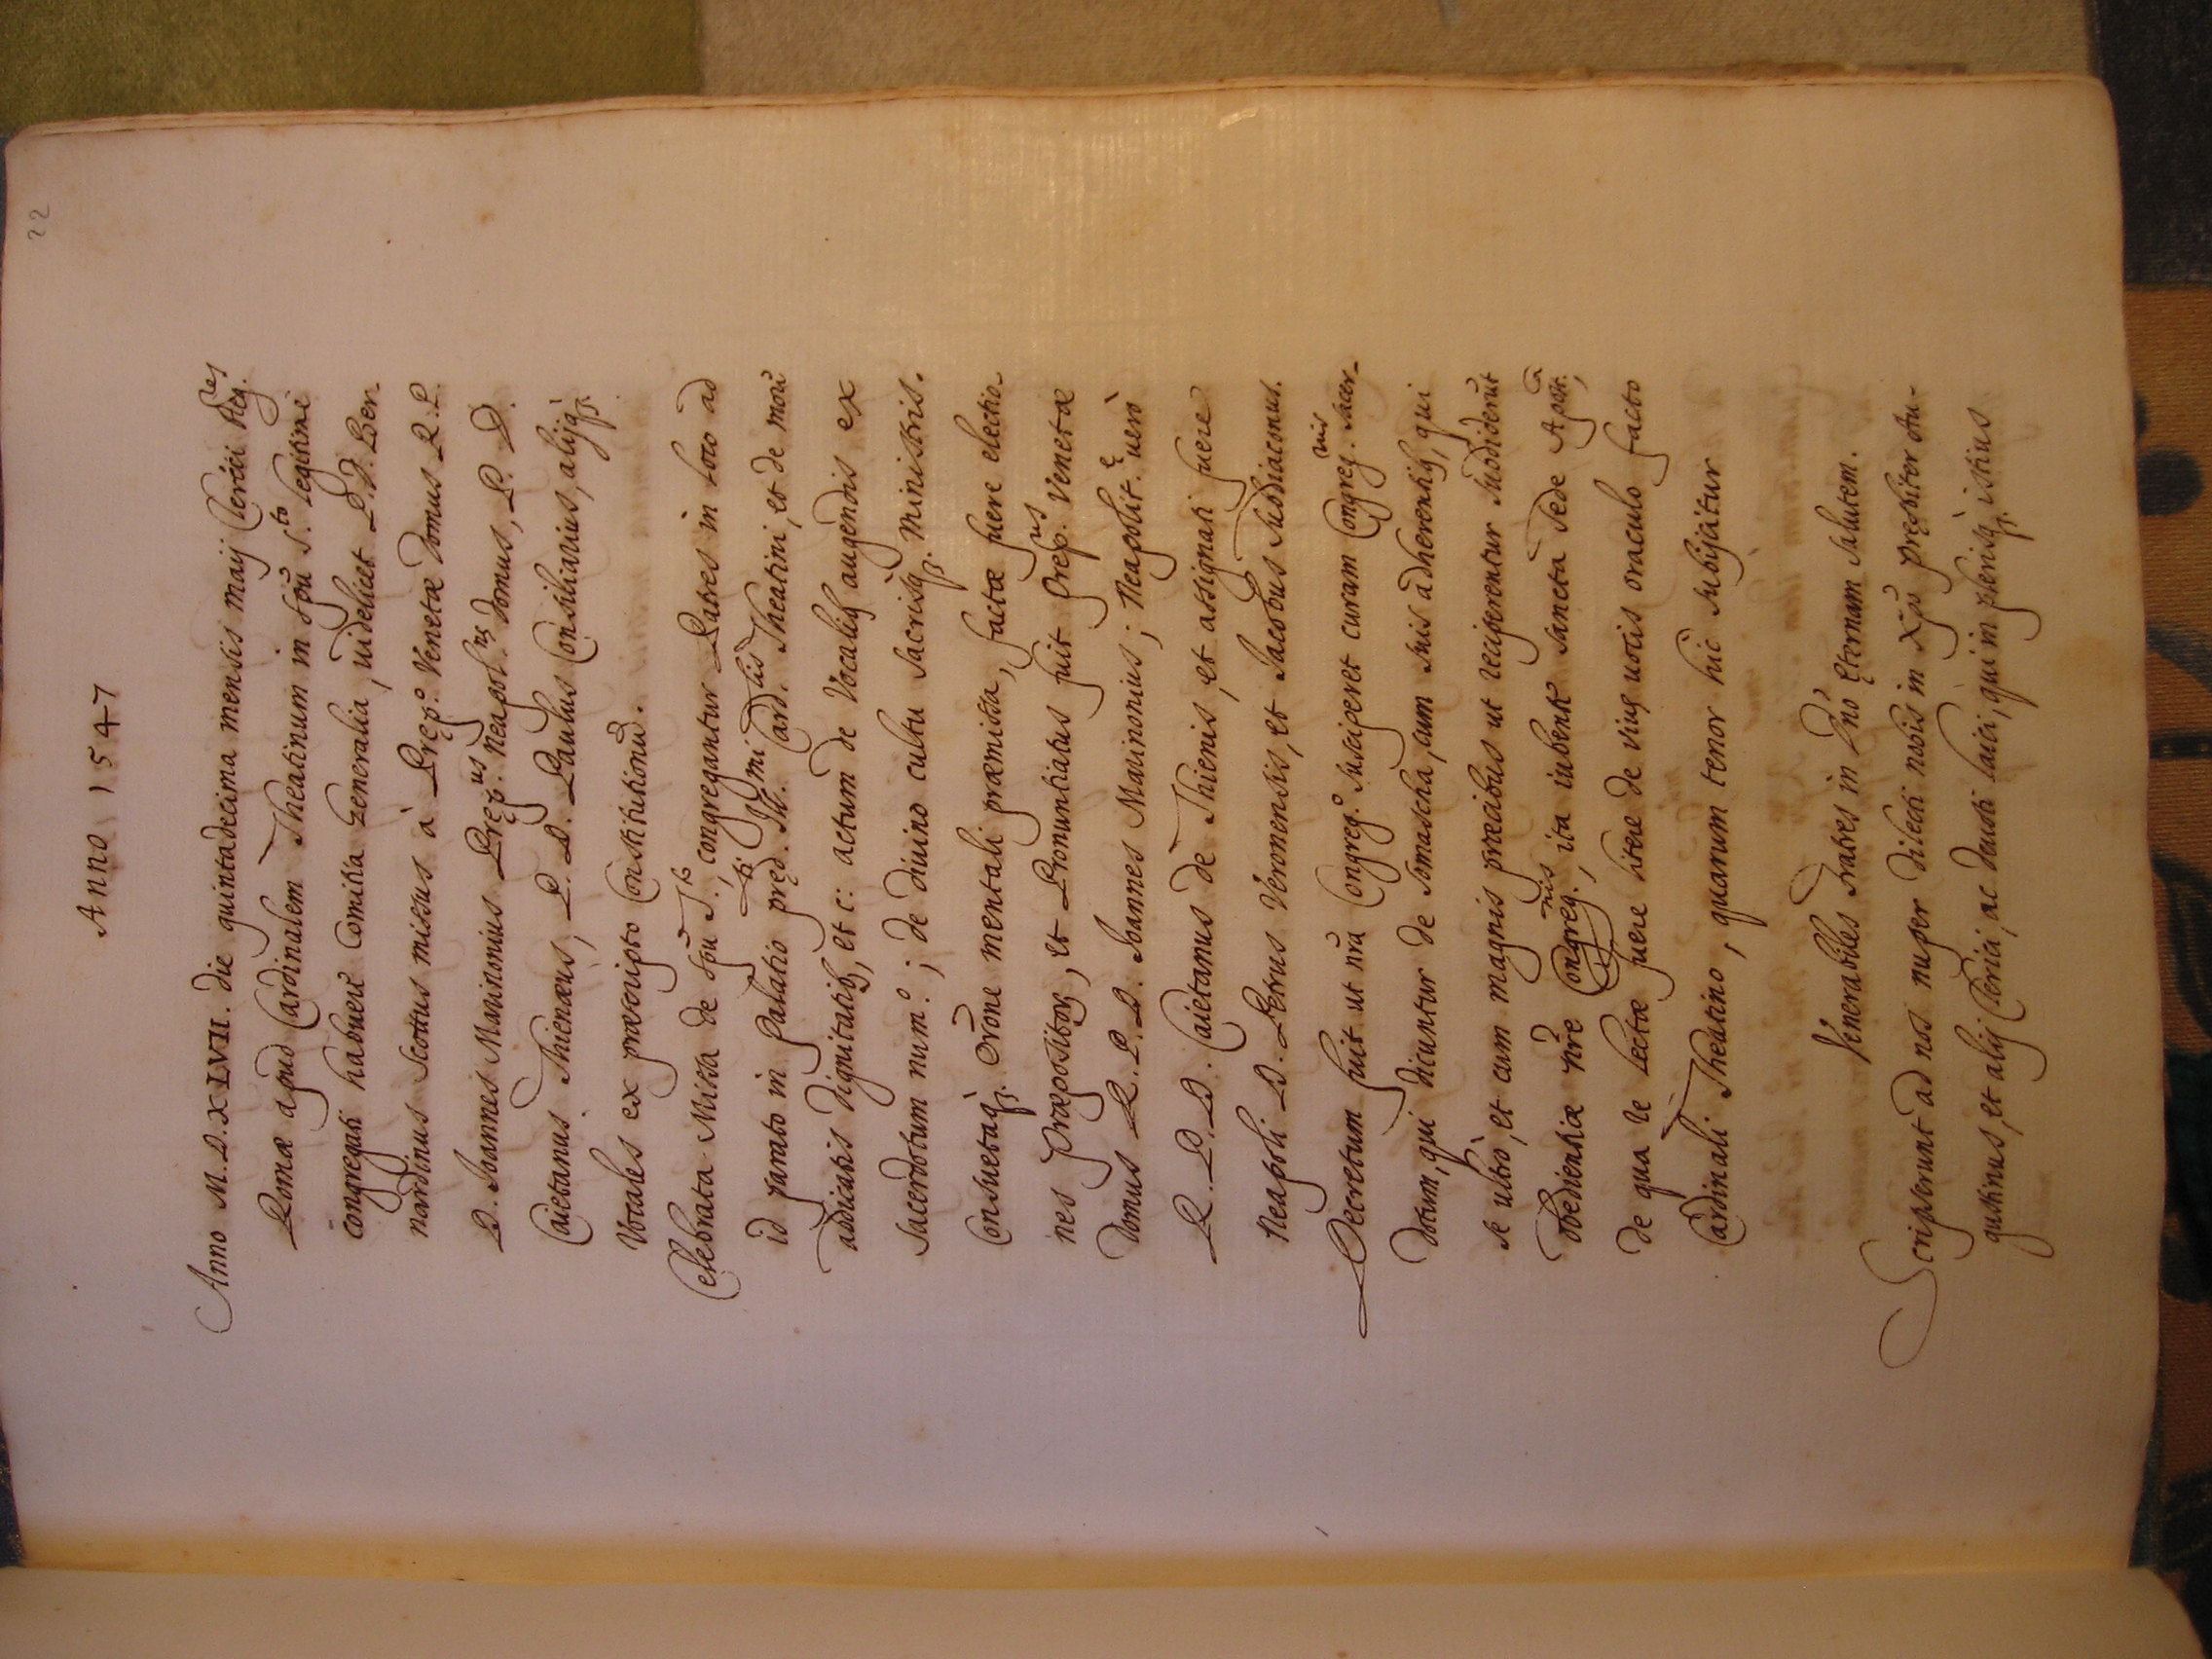 22
Anno 1547
Anno M.D.XLVII. die quintadecima mensis maij Clerici Reg.res
Romæ apud Cardinalem Theatinum in spũ S.to legitimè
congregati habuere Comitia generalia, uidelicet P.D. Ber-
nardinus Scottus missus à Pręp.o Venetæ domus R.P.
D. Ioannes Marinonius Pręp.us Neapol.nę domus, P. D.
Caietanus Thienæus, P. D. Paulus Consiliarius, alijq̀;
Vocales ex præscripto Constitutionũ.
Celebrata Missa de spũ S.to, congregantur Patres in loco ad
id parato in Palatio pręd.ti Ill.mi Card.lis Theatini, et de morũ
addicatis dignitatib, et c: actum de Vocalib augendis ex
Sacerdotum num.o; de diuino cultu sacrisq̀; ministris.
Consuetaq̀; orõne mentali præmissa, factæ fuere electio-
nes Præpositorũ, et Pronuntiatus fuit Prep.us Venetæ
domus R. P. D. Ioannes Marinonius; Neapolit.ę uerò
R. P. D. Caietanus de Thienis, et assignati fuere
Neapoli D. Petrus Veronensis, et Iacobus subdiaconus.
Decretum fuit ut nrã Congreg.o susciperet curam Congreg.nis sacer-
dotum, qui dicuntur de Somascha, cum suis adherentib, qui
se ultrò, et cum magnis præcibus ut reciperentur subdiderũt
obedientiæ nrẽ Congreg.nis, ita iubente sancta sede Apost.ca,
de qua re lectæ fuere litere de viuę uocis oraculo facto
Cardinali Theatino, quarum tenor hìc subijcitur
Venerabiles fratres in Dnõ ęternam salutem.
Scripserunt ad nos nuper dilecti nobis in Xpõ pręsbiter Au-
gustinus, et alij Clerici, ac deuoti laici, qui in plerisq̀; istius